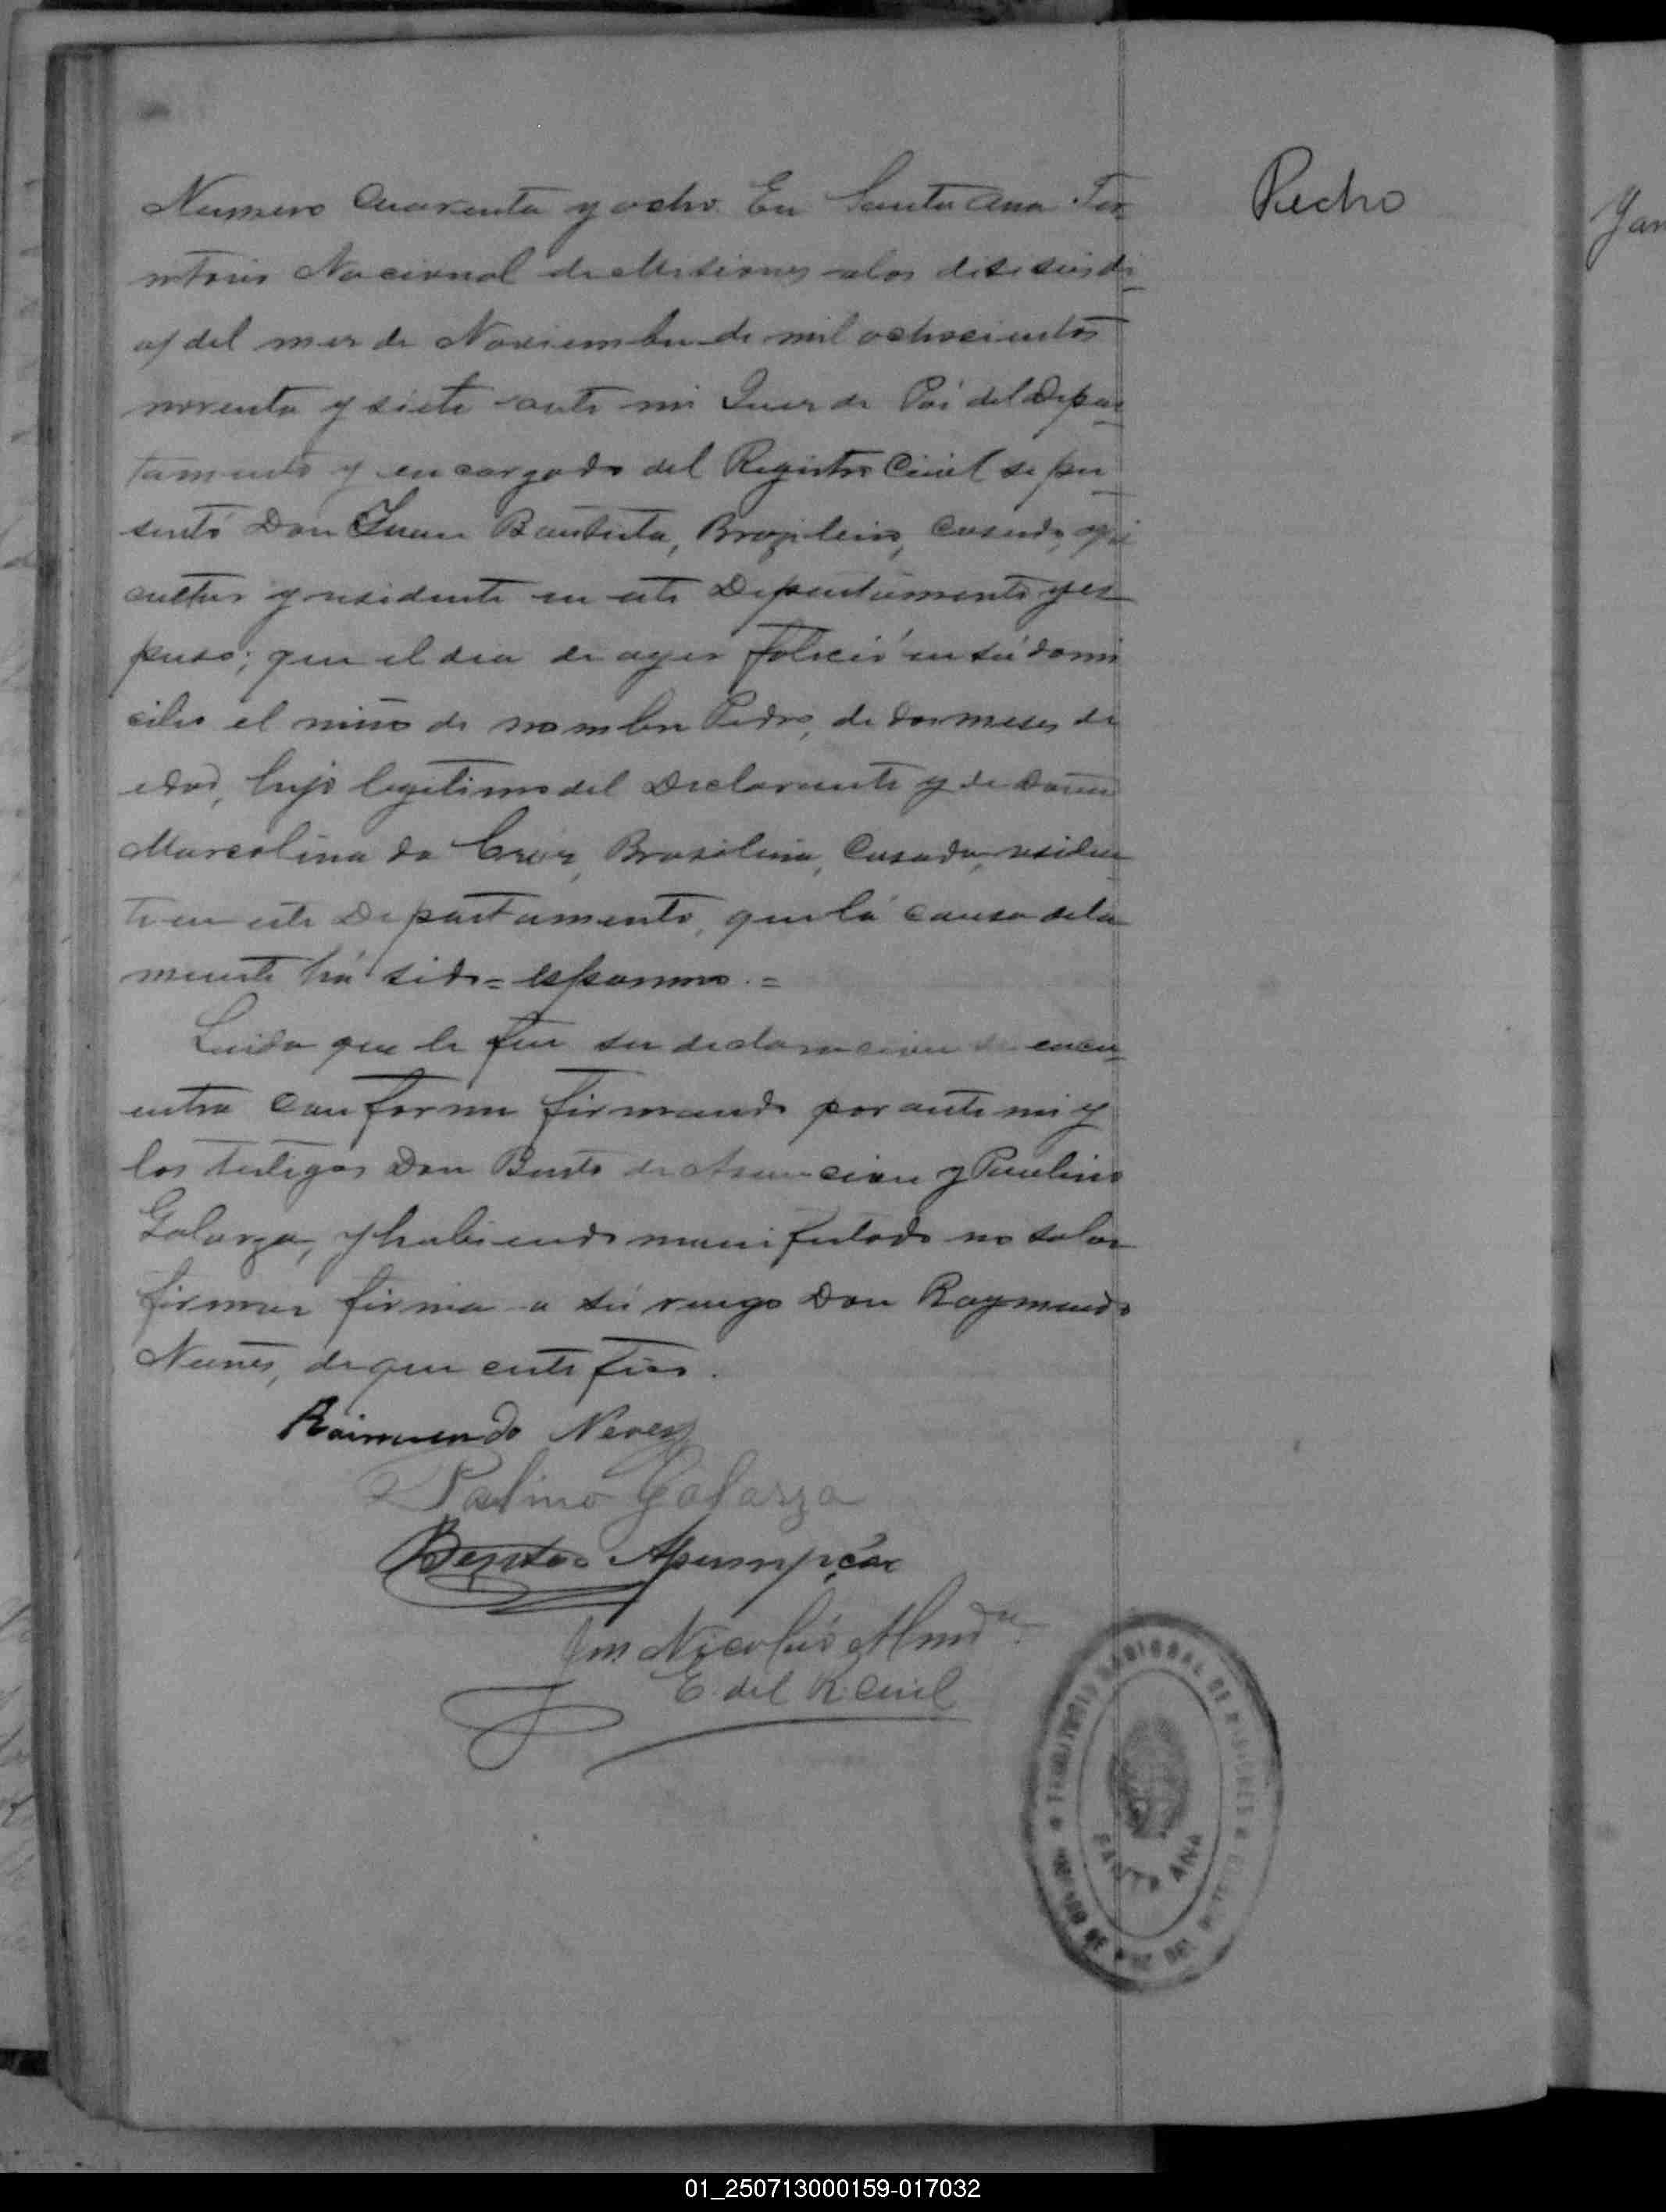 Numero cuarenta y ocho. En Santa Ana Ter
ritorio Nacional de Misiones a los dieseseis di
as del mes de Noviembre de mil ochocientos
noventa y siete ante mi Juez de Pás del Depar
tamento y encargado del Registro Civil se pre
sentó Don Juan Bautista, Brazilero, casado, agri
cultor y residente en este Departamento y es
puso; que el dia de ayer falleció en sú domi
cilio el niño de nombre Pedro, de dos meses de
edad, hijo legitimo del Declarante y de Doña
Marcolina da Cruz, Brasilera, Casada, residen
te en este Departamento, que lá causa de la
muerte há sido = espasmo. =
Leida que le fue su declaracion se encu
entra conforme firmando por ante mi y
los testigos Don Bento de Asuncion y Paulino
Galarza, y habiendo manifestado no saber
firmar firma a sú ruego Don Raymundo
Nunes, de que certifico.
Raimundo Neves
Palino Galarza
Bento Asumpção
Jn Nicolás Almda
E. del R. Civil
Pedro
TERRITORIO NACIONAL DE MISIONES
JUZGADO DE PAZ DEL
SANTA ANA
01_250713000159-017032